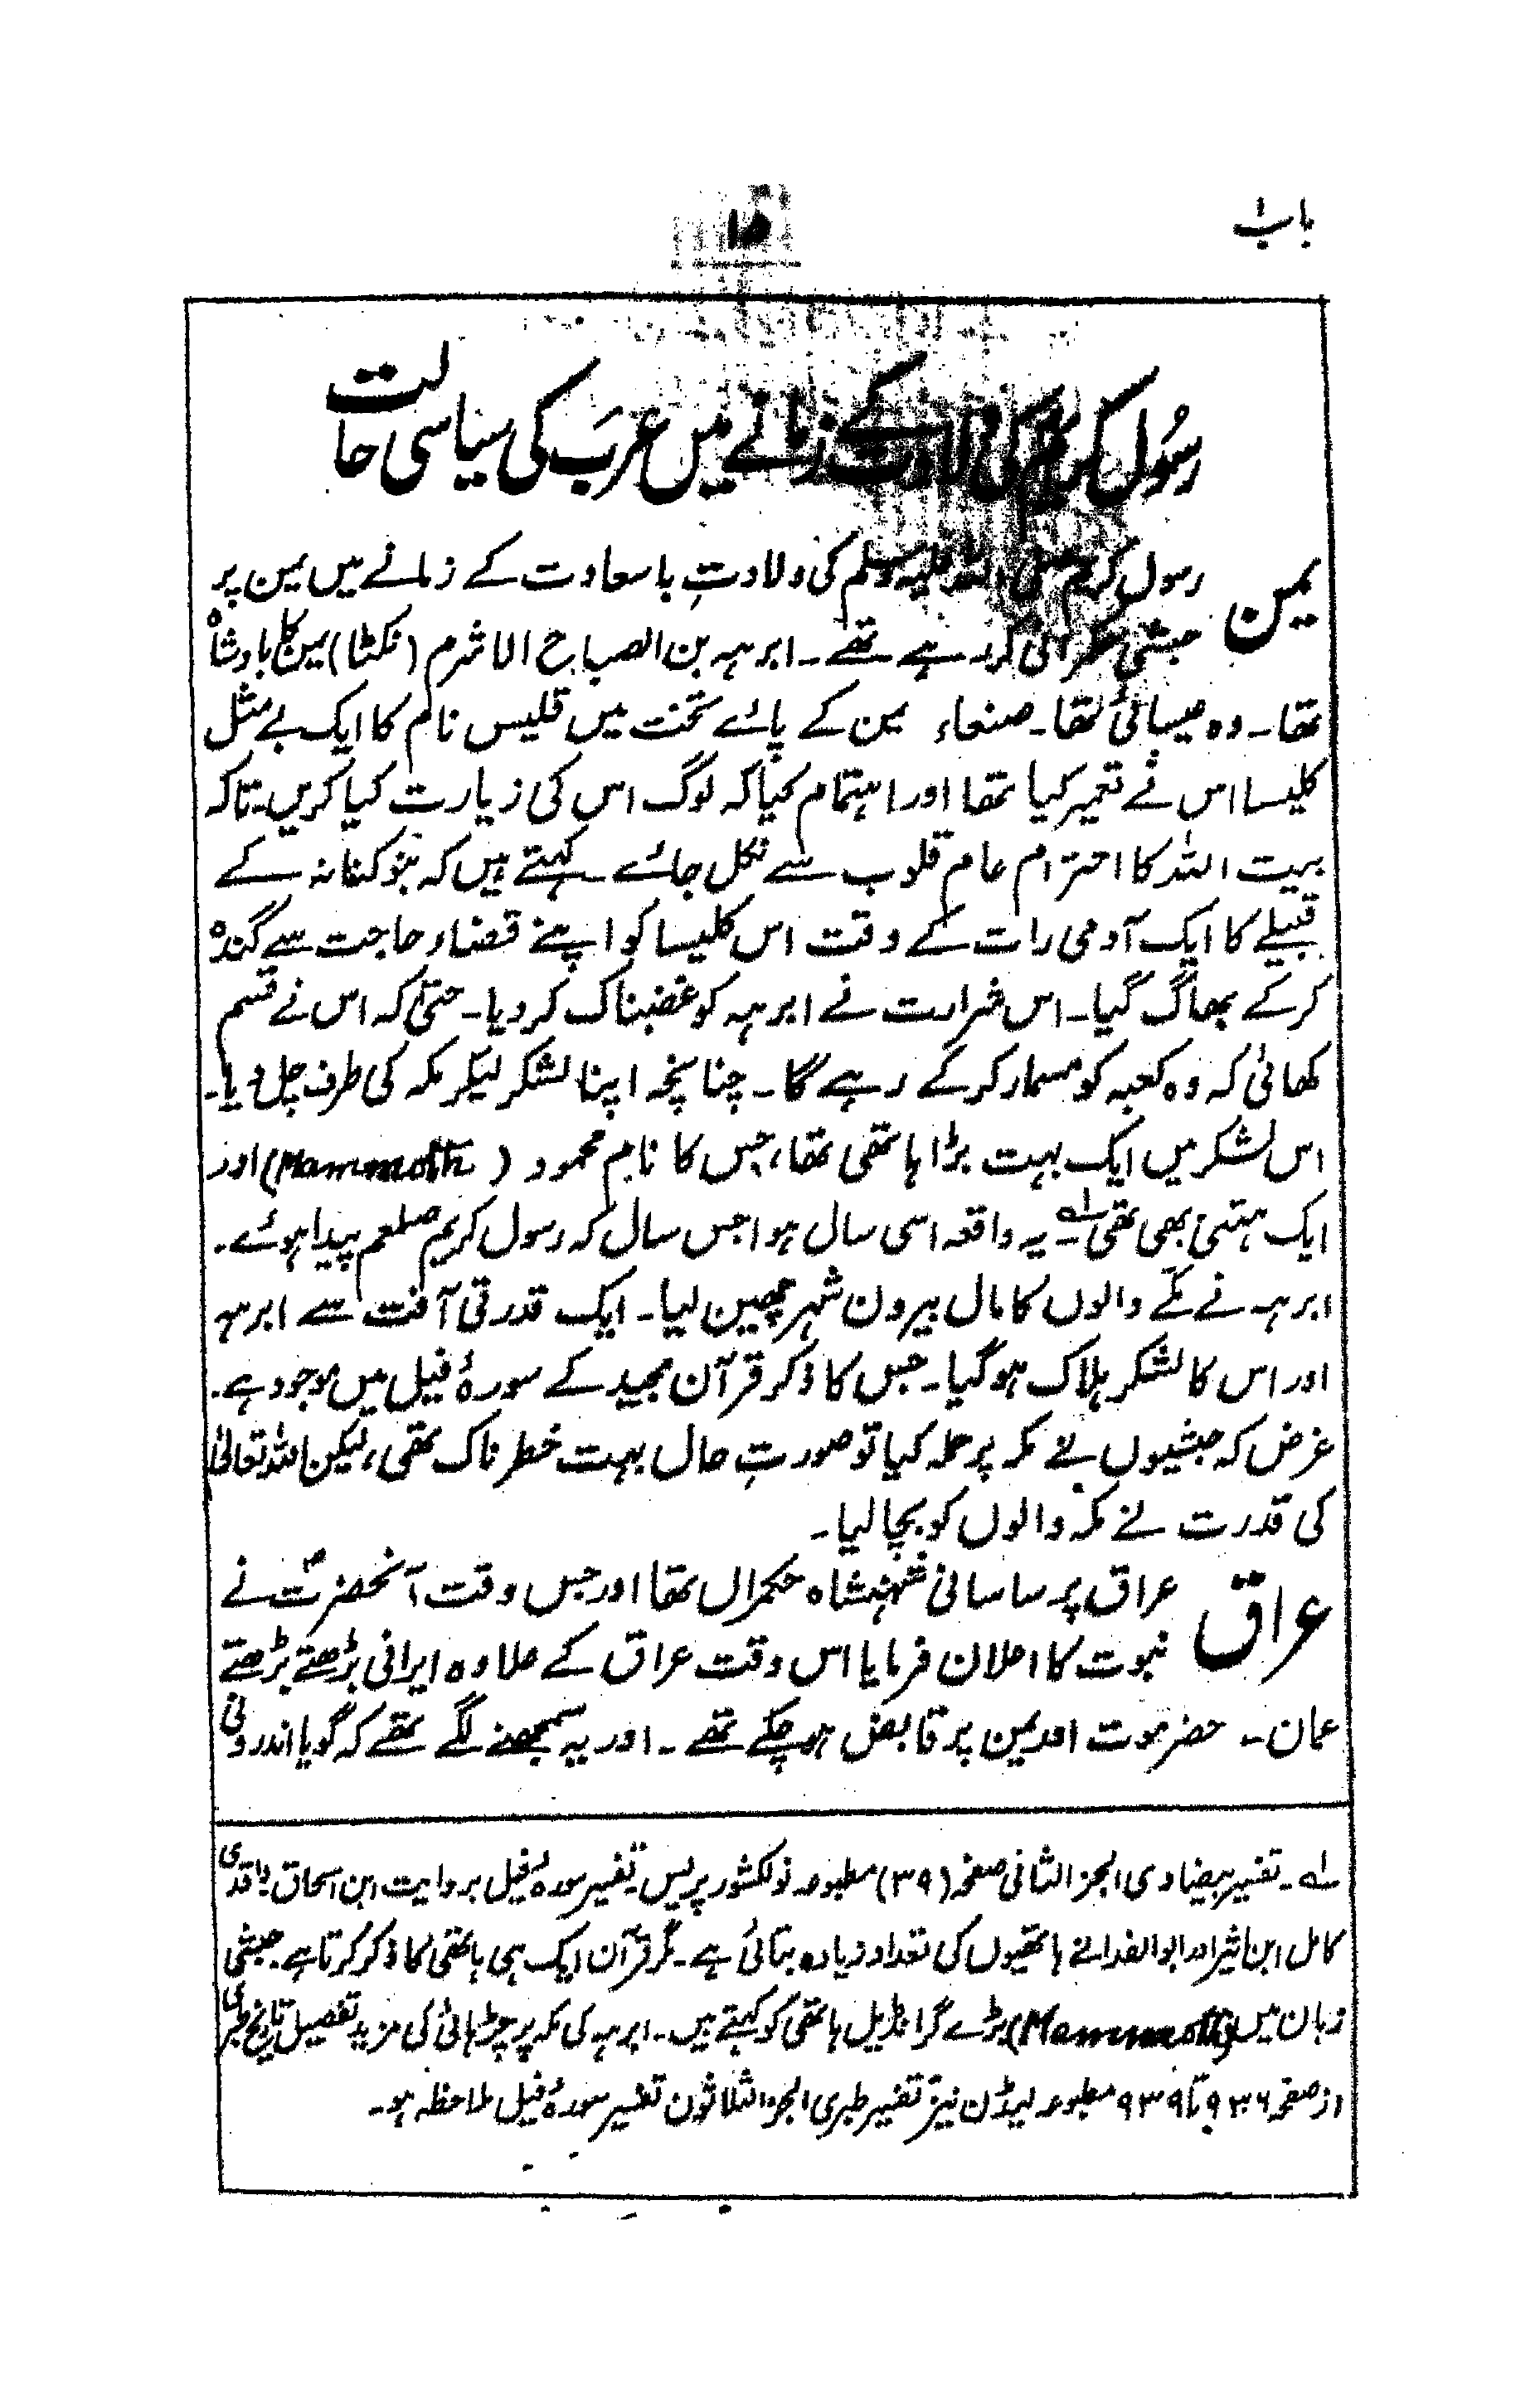 باب ۱
۱۵
رسُول کریم کی ولادت کے زمانے میں عرَب کی سیاسی حالت
یمن رسول کریم صلی اللہ علیہ وسلم کی ولادتِ باسعادت کے زمانے میں یمن پر
حبشی حکمرانی کر رہے تھے۔ ابرہہ بن الصباح الاشرم (نکٹا) یمن کا بادشاہ
تھا۔ وہ عیسائی تھا۔ صنعاء یمن کے پائے تخت میں قلیس نام کا ایک بے مثل
کلیسا اس نے تعمیر کیا تھا اور اہتمام کیا کہ لوگ اس کی زیارت کیا کریں۔ تاکہ
بیت اللہ کا احترام عام قلوب سے نکل جائے۔ کہتے ہیں کہ بنو کنانہ کے
قبیلے کا ایک آدمی رات کے وقت اس کلیسا کو اپنے قضاء حاجت سے گندہ
کرکے بھاگ گیا۔ اس شرارت نے ابرہہ کو غضبناک کر دیا۔ حتیٰ کہ اس نے قسم
کھائی کہ وہ کعبہ کو مسمار کرکے رہے گا۔ چنانچہ اپنا لشکر لیکر مکہ کی طرف چل دیا۔
اس لشکر میں ایک بہت بڑا ہاتھی تھا، جس کا نام محمود (Mammoth) اور
ایک ہتنی بھی تھی۔ لہ یہ واقعہ اسی سال ہوا جس سال کہ رسول کریم صلعم پیدا ہوئے۔
ابرہہ نے مکّے والوں کا مال بیرون شہر چھین لیا۔ ایک قدرتی آفت سے ابرہہ
اور اس کا لشکر ہلاک ہو گیا۔ جس کا ذکر قرآن مجید کے سورۂ فیل میں موجود ہے۔
غرض کہ حبشیوں نے مکہ پر حملہ کیا تو صورتِ حال بہت خطرناک تھی، لیکن اللہ تعالیٰ
کی قدرت نے مکہ والوں کو بچا لیا۔
عراق عراق پر ساسانی شہنشاہ حکمراں تھا اور جس وقت آنحضرتؐ نے
نبوت کا اعلان فرمایا اس وقت عراق کے علاوہ ایرانی بڑھتے بڑھتے
عمان۔ حضرموت اور یمن پر قابض ہو چکے تھے۔ اور یہ سمجھنے لگے تھے کہ گویا اندرونی
لہ۔ تفسیر بیضاوی الجز الثانی صفحہ (۳۹) مطبوعہ نولکشور پریس۔ تفسیر سورۂ فیل بروایت ابن اسحاق۔ واقدی
کامل ابن اثیر اور ابوالفدا نے ہاتھیوں کی تعداد زیادہ بتائی ہے۔ مگر قرآن ایک ہی ہاتھی کا ذکر کرتا ہے۔ حبشی
زبان میں (Mammoth) بڑے گرانڈیل ہاتھی کو کہتے ہیں۔ ابرہہ کی مکہ پر چڑھائی کی مزید تفصیل تاریخ طبری
از صفحہ ۹۳۶ تا ۹۳۹ مطبوعہ لیڈن نیز تفسیر طبری الجزء الثلاثون تفسیر سورۂ فیل ملاحظہ ہو۔